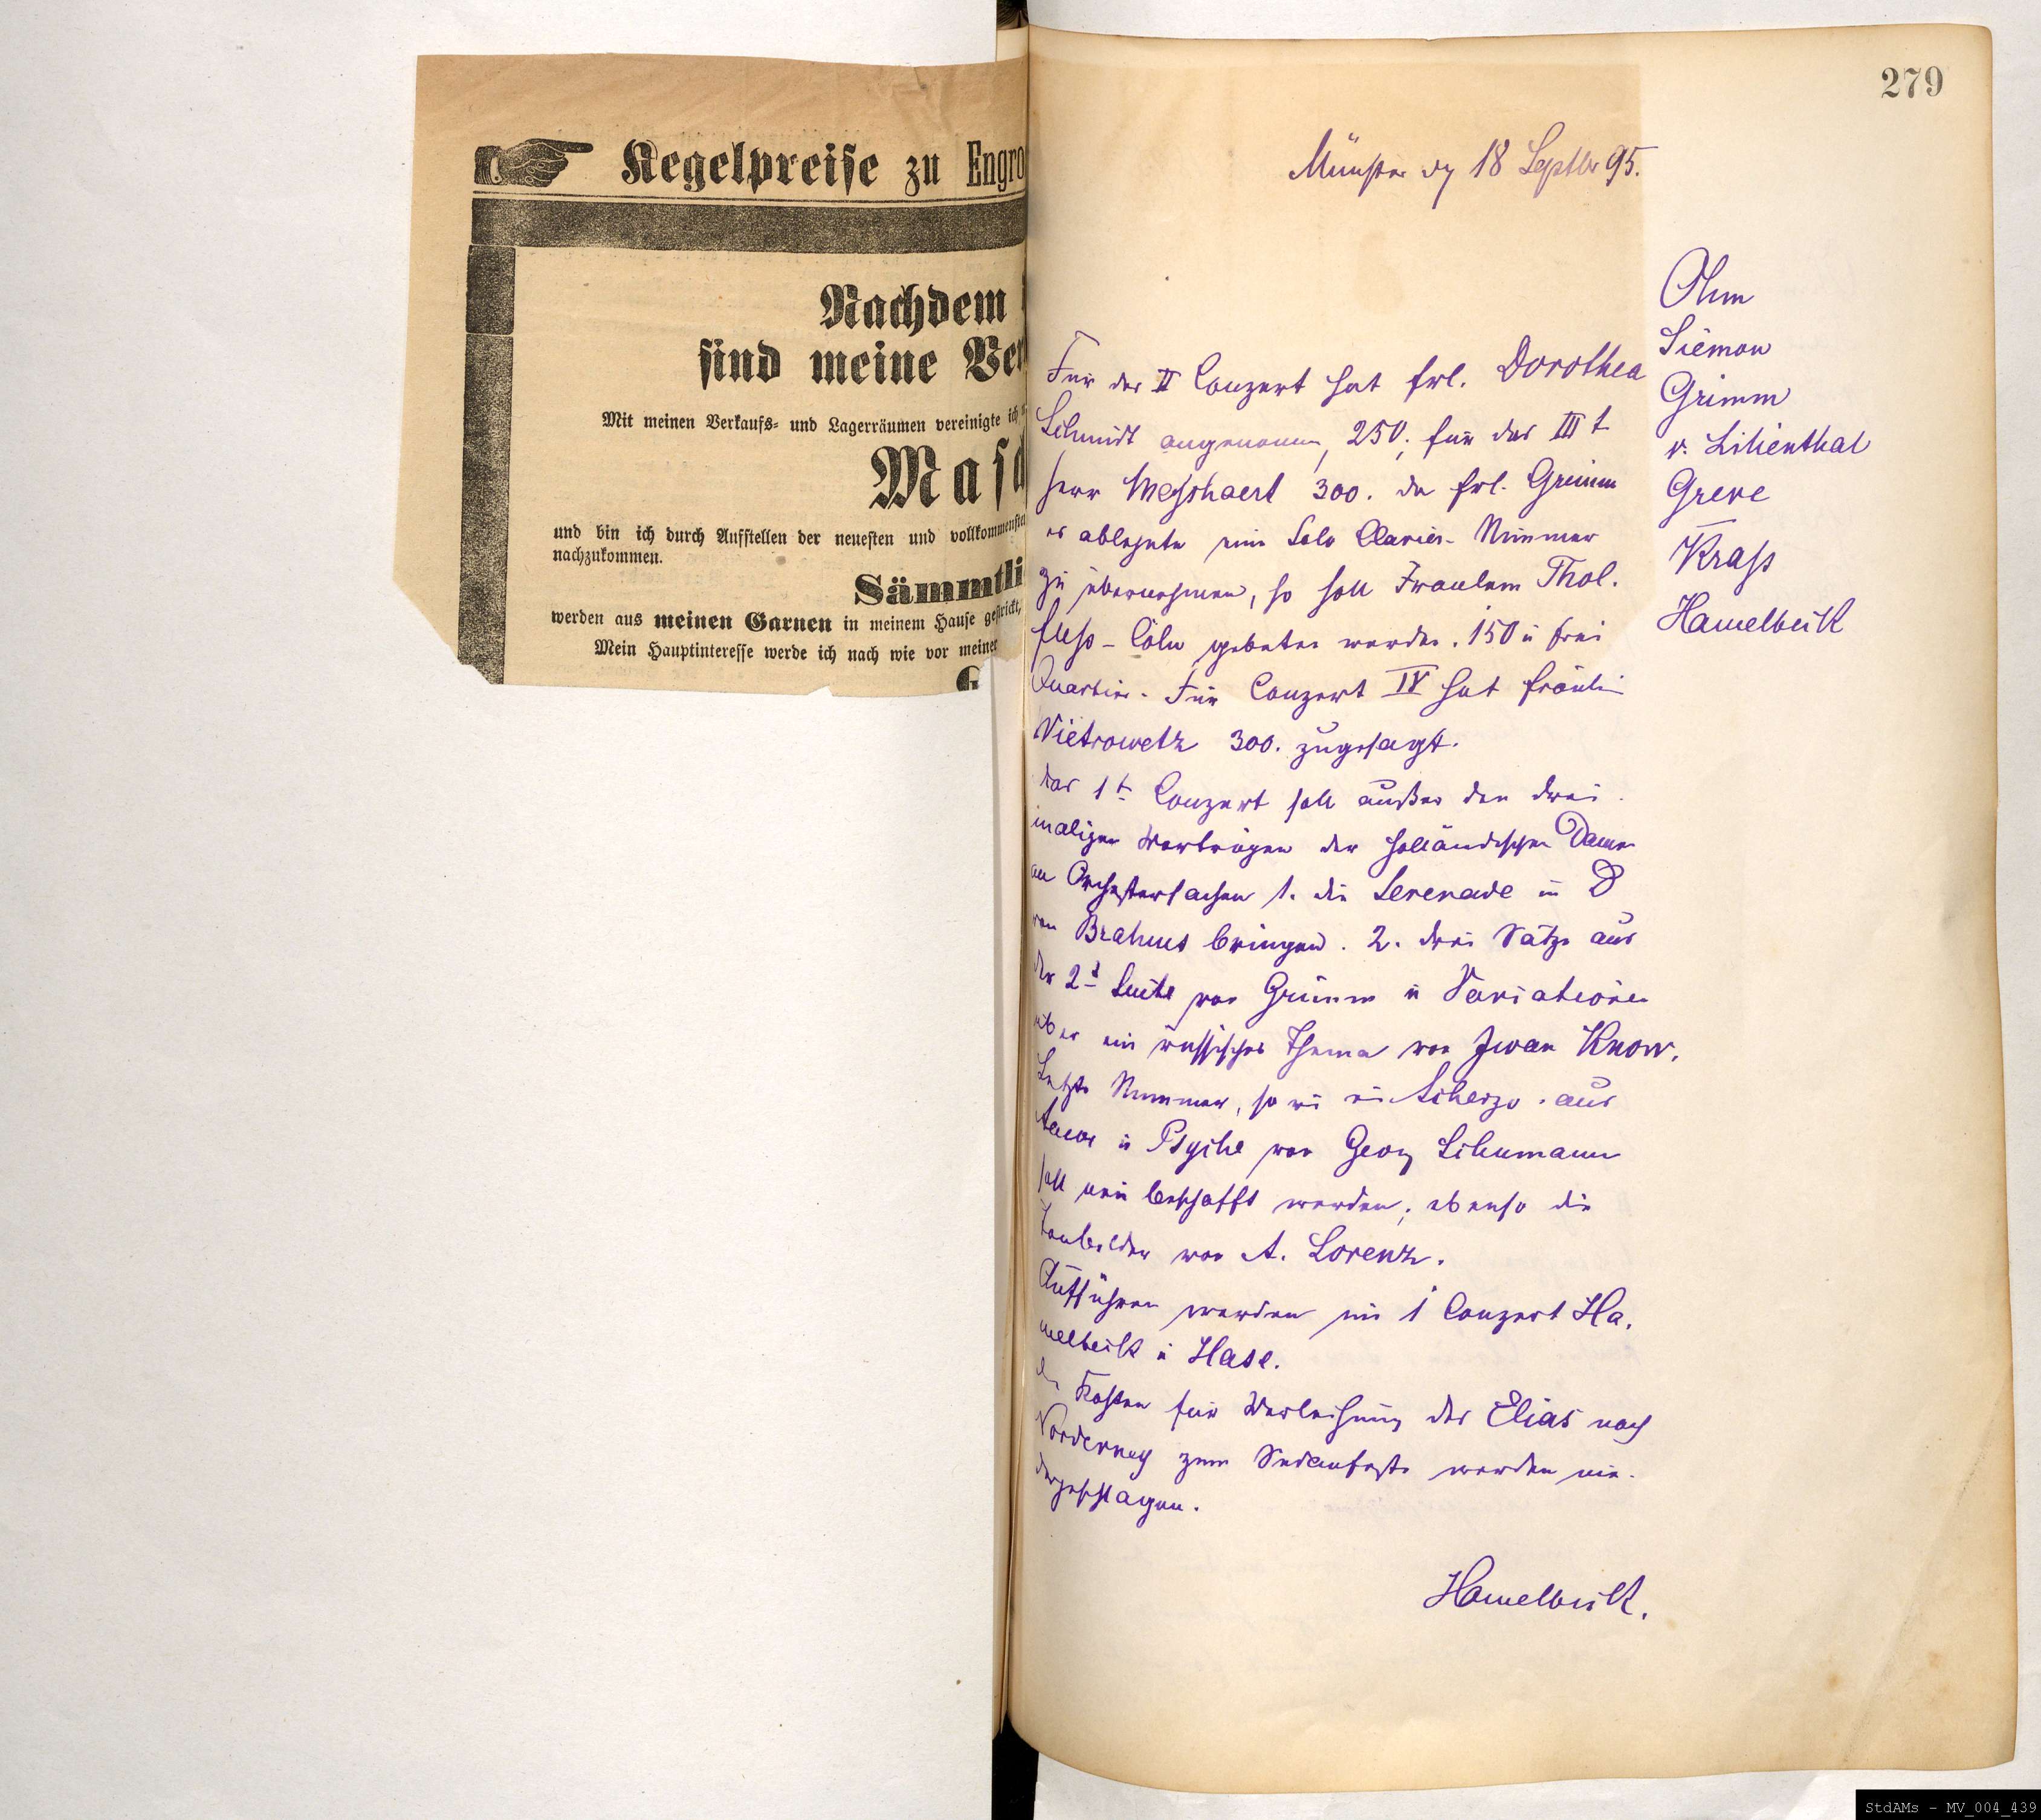 Regelpreise zu Engro
Nachdem
sind meine Ver
Mit meinen Verkaufs- und Lagerräumen vereinigte ich
Masc
und bin ich durch Aufstellen der neuesten und vollkommensten
nachzukommen.
Sämmtli
werden aus meinen Garnen in meinem Hause gestrickt,
Mein Hauptinteresse werde ich nach wie vor meiner
G
279
Münster 18 Septbr 95.
Ohm
Siemon
Grimm
v. Lilienthal
Greve
Krass
Hamelbeck
Für das II Conzert hat Frl. Dorothea
Schmidt angenommen, 250; für das III t
Herr Messhaert 300. da Frl. Grimm
es ablehnte eine Solo Clavier-Nummer
zu übernehmen, so soll Fraulein Thol.
fuss - Cöln gebeten werden. 150 u frei
Quartier. Für Conzert IV hat Fräulein
Vietrowetz 300. zugesagt.
Das 1t Conzert soll außer den drei
maligen Vorträgen der holländischen Damen
an Orchestersachen 1. die Serenade in D
von Brahms bringen. 2. drei Sätze aus
der 2t Suite von Grimm u Variationen
über ein russisches Thema von Iwan Knorr.
Letzte Nummer, so wie ein Scherzo aus
Amor u Psyche von Georg Schumann
soll neu beschafft werden; ebenso die
Tonbilder von A. Lorenz.
Aufführen werden im 1 Conzert Ha.
melbeck u Hase.
Die Kosten für Verleihung des Elias nach
Norderney zum Sedanfeste werden nie.
dergeschlagen.
Hamelbeck.
StdAMs - MV_004_439